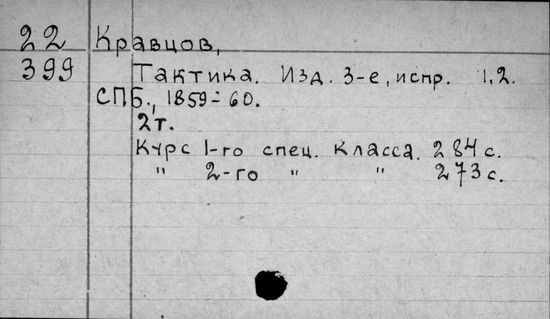 22 Кравцов,
399 Тактика. Изд. 3-е, испр. 1,2.
СПБ., 1859-60.
2т.
Курс 1-го спец. класса. 284 с.
" 2-го " " 273 с.